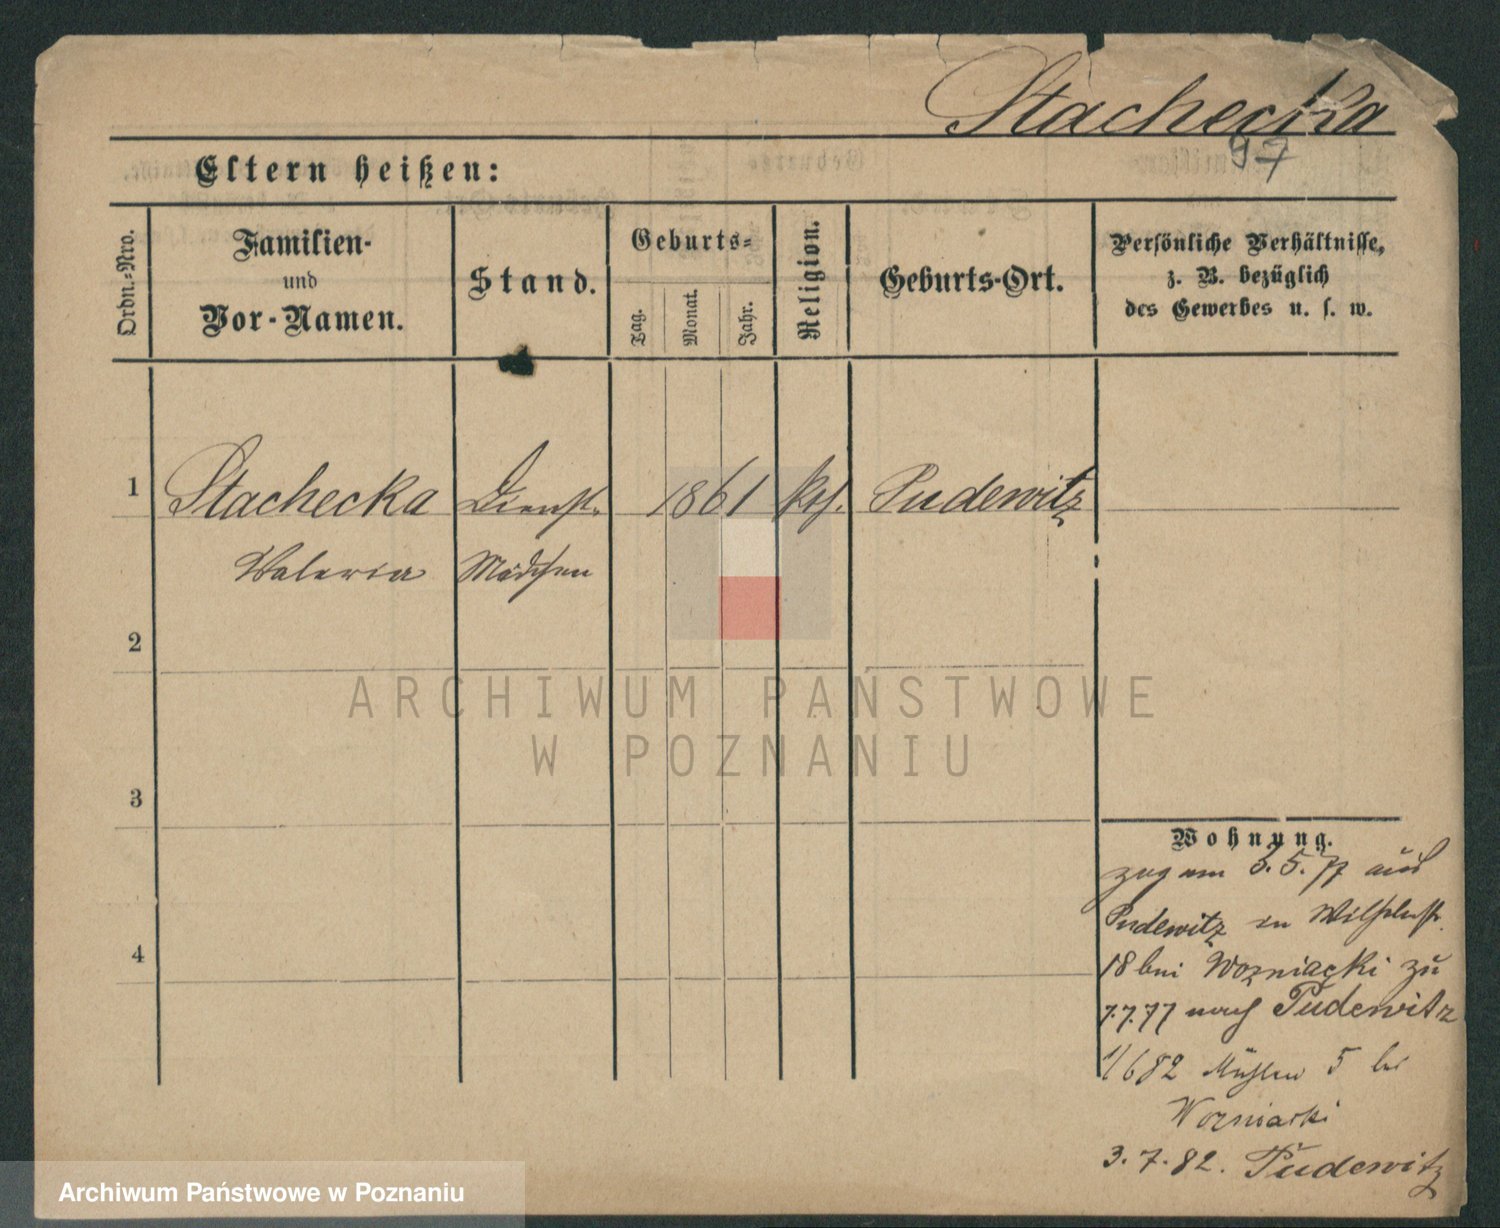 Stachecka
97
Eltern heißen:
Ordn.-Nro.
Familien-
und
Vor-Namen.
Stand.
Geburts-
Tag.
Monat.
Jahr.
Religion.
Geburts-Ort.
Persönliche Verhältnisse,
z. B. bezüglich
des Gewerbes u. s. w.
1
Stachecka Dienst- 1861 kth. Pudewitz
Valeria Mädchen
2
3
4
Wohnung.
zog am 3.5.77 aus
Pudewitz in Wilhelmstr.
18 bei Wozniacki zu
7.7.77 nach Pudewitz
1/6 82 Mühlen 5 bei
Wozniacki
3.7.82. Pudewitz
ARCHIWUM PAŃSTWOWE
W POZNANIU
Archiwum Państwowe w Poznaniu